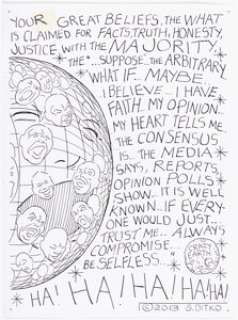 YOUR GREAT BELIEFS, THE WHAT
IS CLAIMED FOR FACTS, TRUTH, HONESTY,
JUSTICE, WITH THE MAJORITY,
THE "...SUPPOSE...THE ARBITRARY,
WHAT IF... MAYBE...
I BELIEVE... I HAVE
FAITH, MY OPINION...
MY HEART TELLS ME
THE CONSENSUS
IS... THE MEDIA
SAYS, REPORTS,
OPINION POLLS
SHOW... IT IS WELL
KNOWN... IF EVERY-
ONE WOULD JUST...
TRUST ME... ALWAYS
COMPROMISE...
BE SELFLESS..."
HA! HA! HA! HA! HA!
©2013 S. DITKO